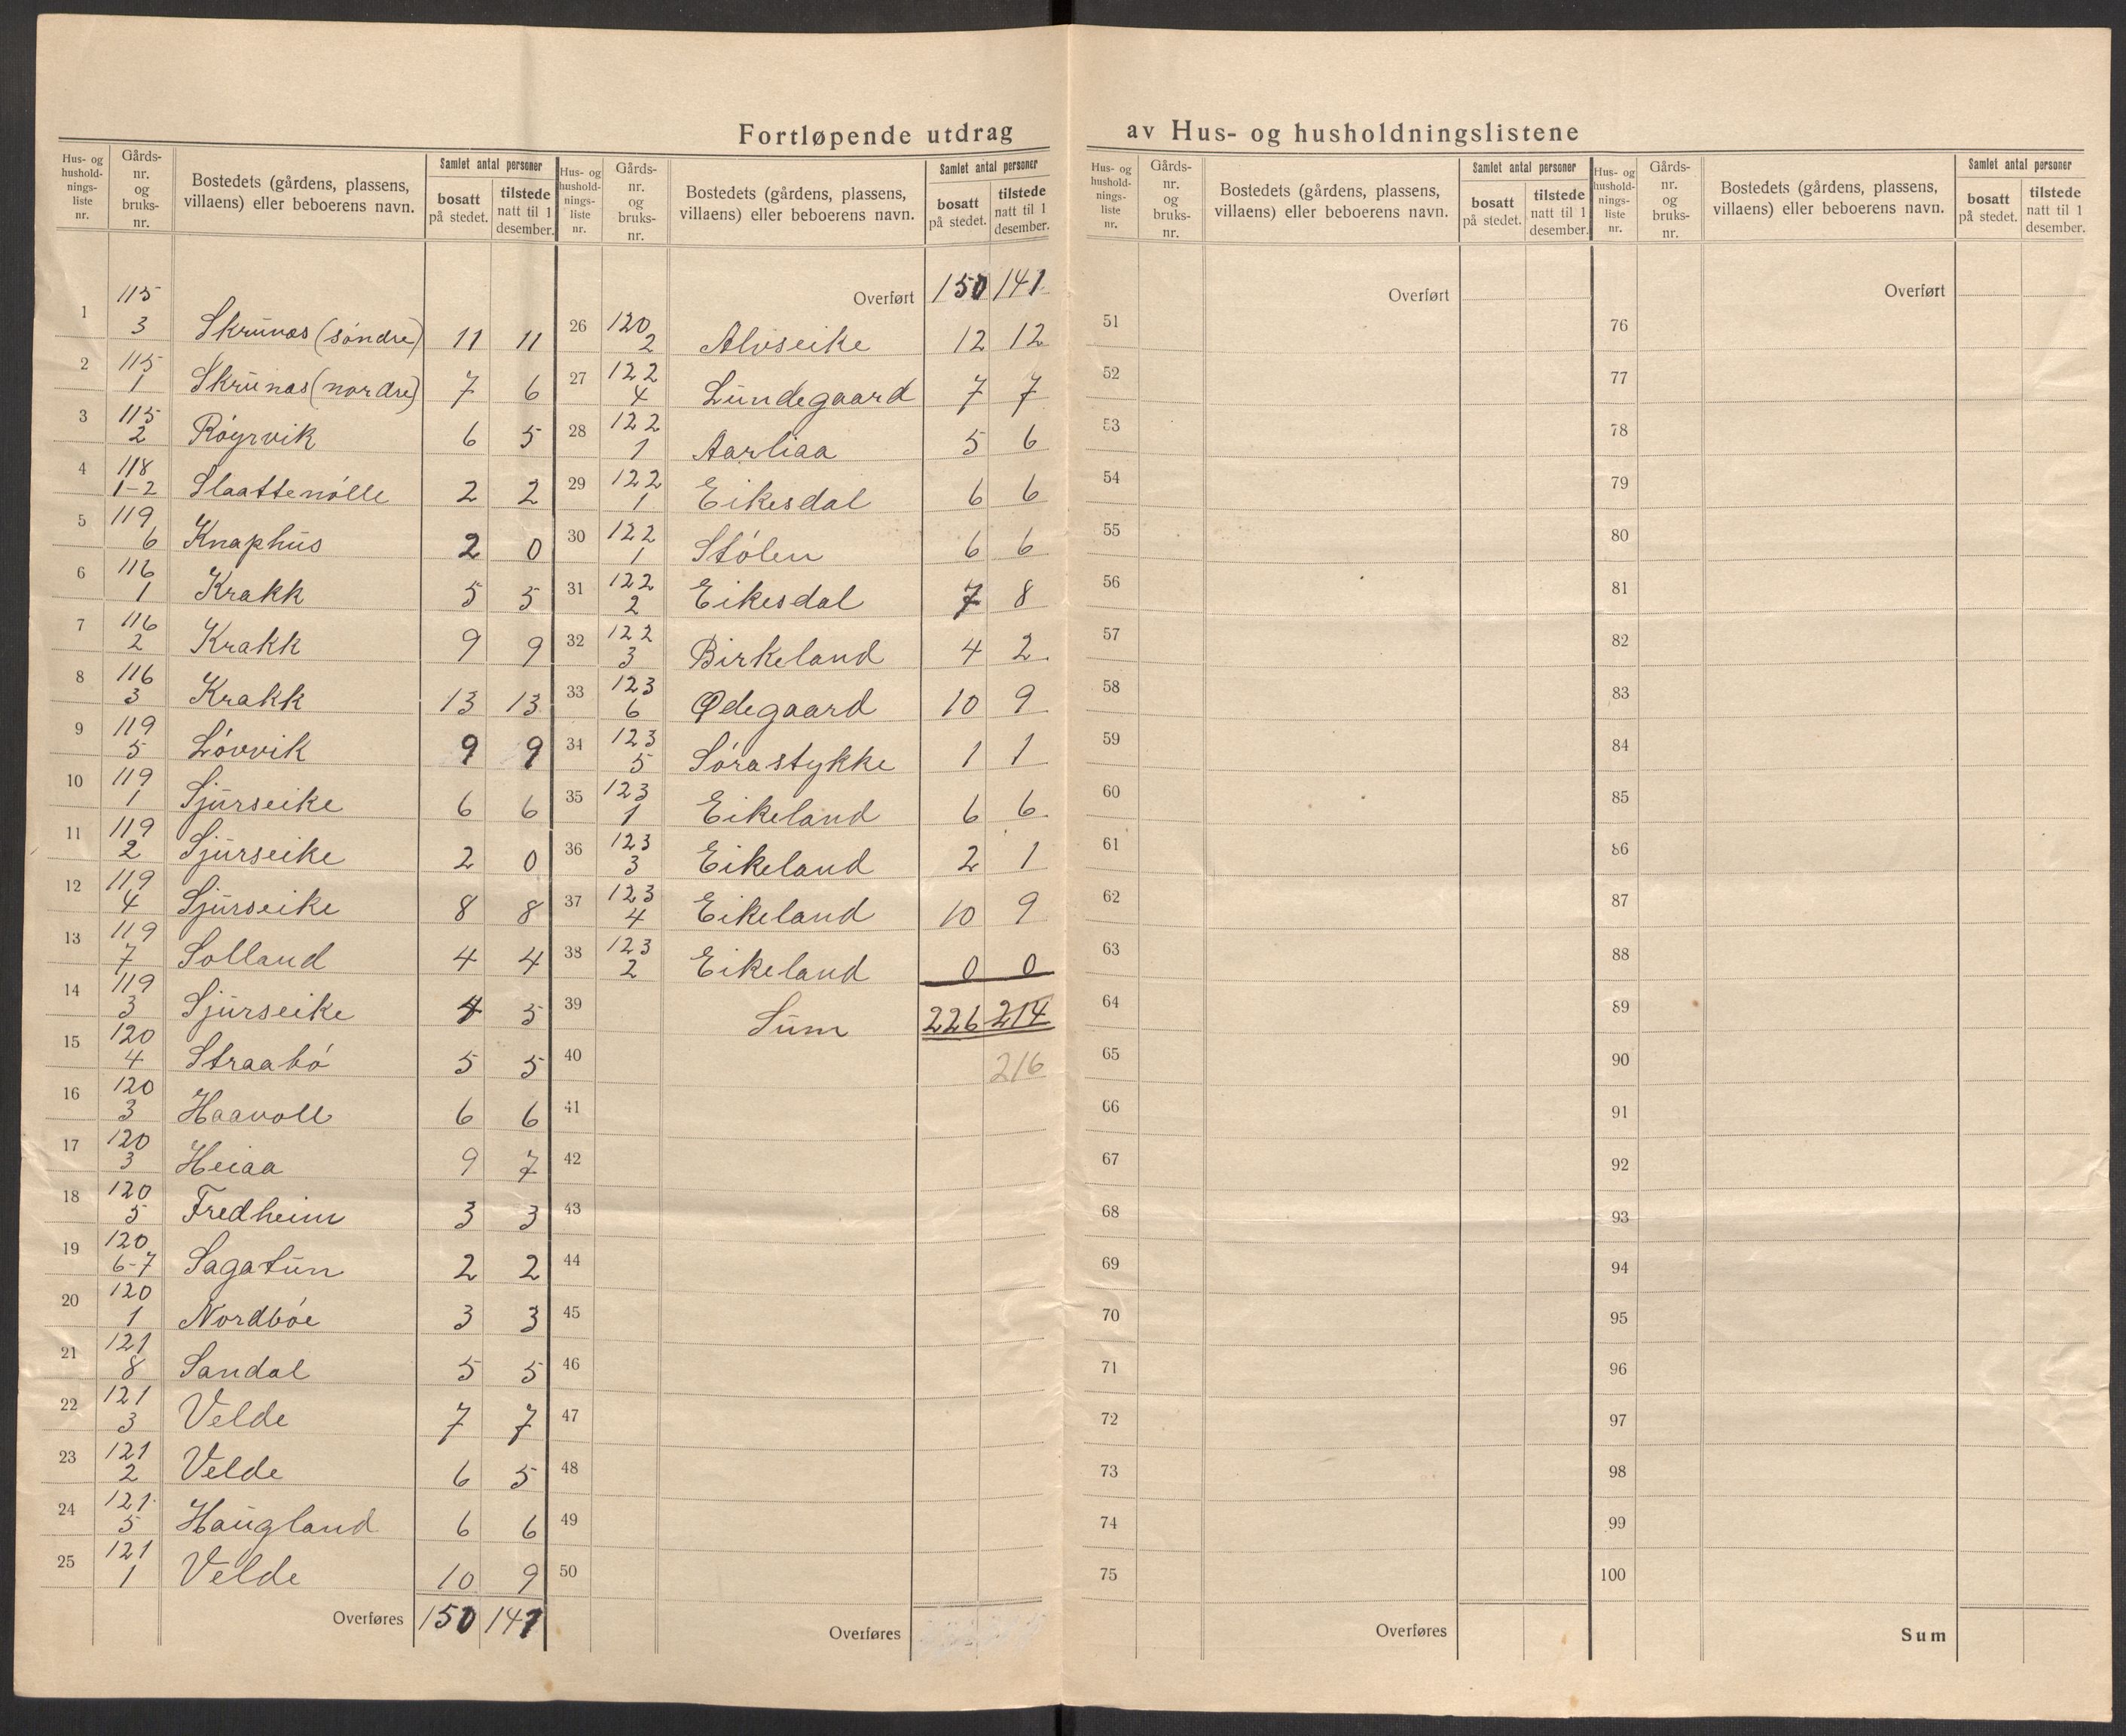 Fortløpende utdrag av Hus- og husholdningslistene
Hus- og husholdnings-liste nr. | Gårds-nr. og bruks-nr. | Bostedets (gårdens, plassens, villaens) eller beboerens navn. | Samlet antal personer | bosatt på stedet. | tilstede natt til 1 desember.
1 | 115 3 | Skrunes (søndre) | 11 | 11
2 | 115 1 | Skrunas (nordre) | 7 | 6
3 | 115 2 | Røyrvik | 6 | 5
4 | 118 1-2 | Slaattenølle | 2 | 2
5 | 119 6 | Knaphus | 2 | 0
6 | 116 1 | Krakk | 5 | 5
7 | 116 2 | Krakk | 9 | 9
8 | 116 3 | Krakk | 13 | 13
9 | 119 5 | Løvvik | 9 | 9
10 | 119 1 | Sjurseike | 6 | 6
11 | 119 2 | Sjurseike | 2 | 0
12 | 119 4 | Sjurseike | 8 | 8
13 | 119 7 | Solland | 4 | 4
14 | 119 3 | Sjurseike | 4 | 5
15 | 120 4 | Straabø | 5 | 5
16 | 120 3 | Haavoll | 6 | 6
17 | 120 3 | Heiaa | 9 | 7
18 | 120 5 | Fredheim | 3 | 3
19 | 120 6-7 | Sagatun | 2 | 2
20 | 120 1 | Nordbøe | 3 | 3
21 | 121 8 | Sandal | 5 | 5
22 | 121 3 | Velde | 7 | 7
23 | 121 2 | Velde | 6 | 5
24 | 121 5 | Haugland | 6 | 6
25 | 121 1 | Velde | 10 | 9
Overføres 150 141
Hus- og husholdnings-liste nr. | Gårds-nr. og bruks-nr. | Bostedets (gårdens, plassens, villaens) eller beboerens navn. | Samlet antal personer | bosatt på stedet. | tilstede natt til 1 desember.
Overført 150 141
26 | 120 2 | Alvseike | 12 | 12
27 | 122 4 | Lundegaard | 7 | 7
28 | 122 1 | Aarliaa | 5 | 6
29 | 122 1 | Eikesdal | 6 | 6
30 | 122 1 | Stølen | 6 | 6
31 | 122 2 | Eikesdal | 7 | 8
32 | 122 3 | Birkeland | 4 | 2
33 | 123 6 | Ødegaard | 10 | 9
34 | 123 5 | Sørastykke | 1 | 1
35 | 123 1 | Eikeland | 6 | 6
36 | 123 3 | Eikeland | 2 | 1
37 | 123 4 | Eikeland | 10 | 9
38 | 123 2 | Eikeland | 0 | 0
39 | Sum | 226 | 214
40 | 216
41
42
43
44
45
46
47
48
49
50
Overføres
Hus- og husholdnings-liste nr. | Gårds-nr. og bruks-nr. | Bostedets (gårdens, plassens, villaens) eller beboerens navn. | Samlet antal personer | bosatt på stedet. | tilstede natt til 1 desember.
Overført
51
52
53
54
55
56
57
58
59
60
61
62
63
64
65
66
67
68
69
70
71
72
73
74
75
Overføres
Hus- og husholdnings-liste nr. | Gårds-nr. og bruks-nr. | Bostedets (gårdens, plassens, villaens) eller beboerens navn. | Samlet antal personer | bosatt på stedet. | tilstede natt til 1 desember.
Overført
76
77
78
79
80
81
82
83
84
85
86
87
88
89
90
91
92
93
94
95
96
97
98
99
100
Sum